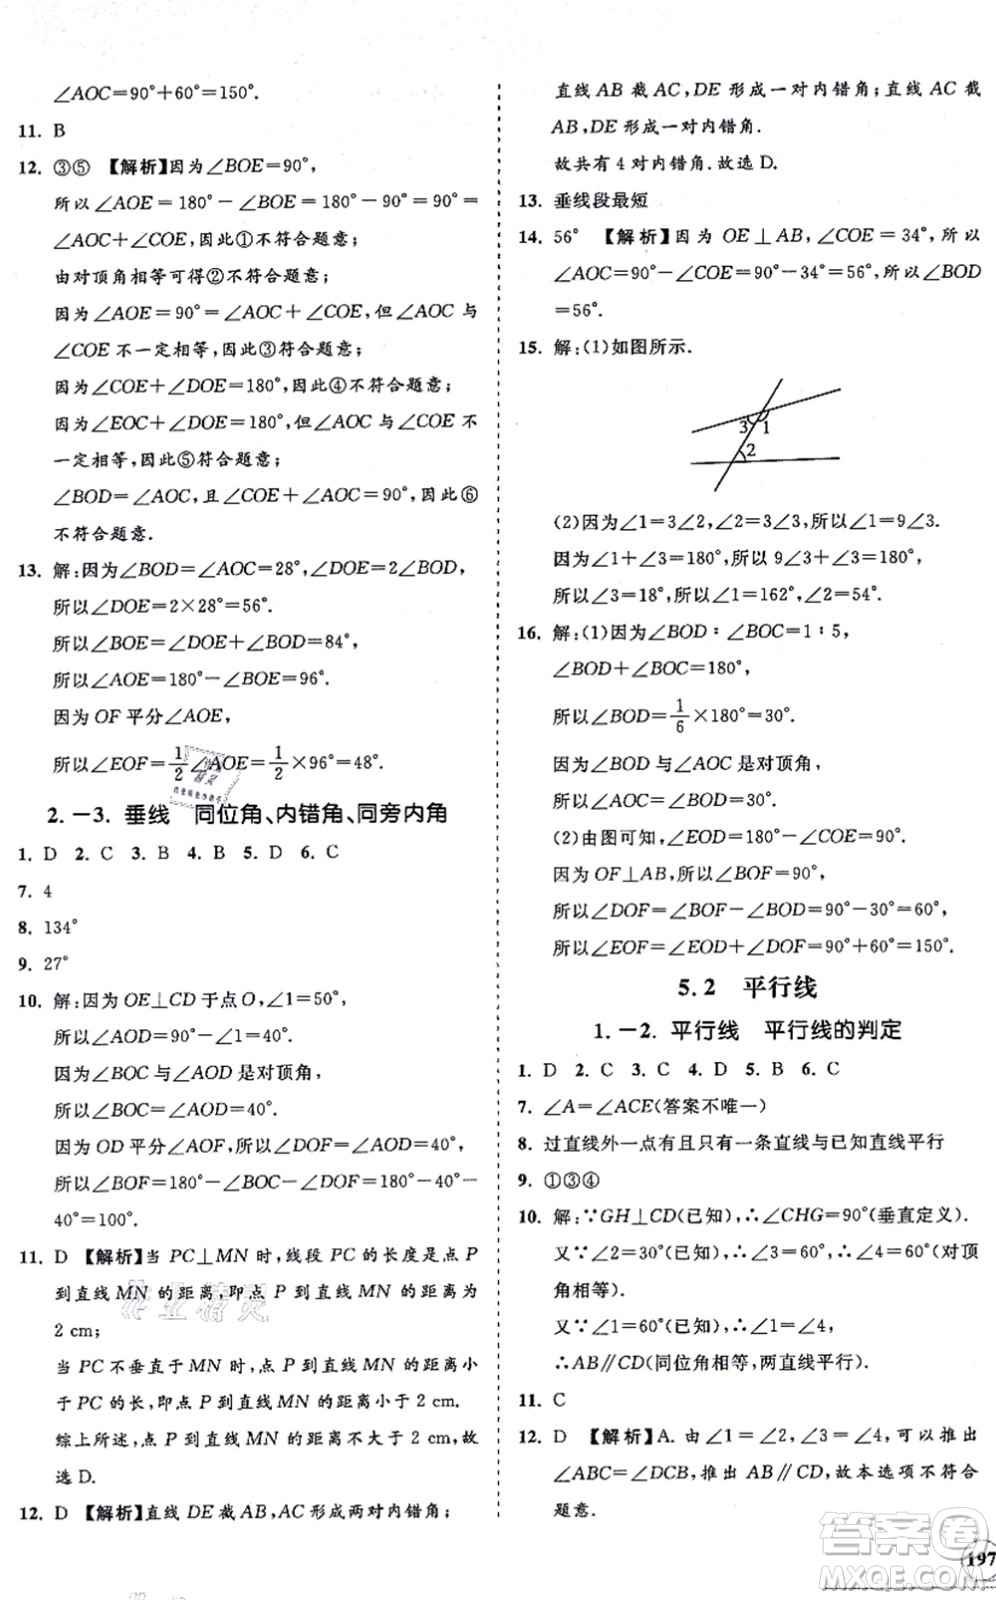 ∠AOC=90°+60°=150°.
11. B
12. ③⑤ 【解析】因为∠BOE=90°,
所以∠AOE=180°-∠BOE=180°-90°=90°
=∠AOC+∠COE,因此①不符合题意;
由对顶角相等可得②不符合题意;
因为∠AOE=90°=∠AOC+∠COE,但∠AOC 与
∠COE 不一定相等,因此③符合题意;
因为∠COE+∠DOE=180°,因此④不符合题意;
因为∠EOC+∠DOE=180°,但∠AOC与∠COE 不
一定相等,因此⑤符合题意;
∠BOD=∠AOC,且∠COE+∠AOC=90°,因此⑥
不符合题意.
13. 解:因为∠BOD=∠AOC=28°,∠DOE=2∠BOD,
所以∠DOE=2×28°=56°.
所以∠BOE=∠DOE+∠BOD=84°.
所以∠AOE=180°-∠BOE=96°.
因为 OF 平分∠AOE,
所以∠EOF=1/2∠AOE=1/2×96°=48°.
2.-3. 垂线 同位角、内错角、同旁内角
1. D 2. C 3. B 4. B 5. D 6. C
7. 4
8. 134°
9. 27°
10. 解:因为OE⊥CD于点O,∠1=50°,
所以∠AOD=90°-∠1=40°.
因为∠BOC与∠AOD是对顶角,
所以∠BOC=∠AOD=40°.
因为OD平分∠AOF,所以∠DOF=∠AOD=40°,
所以∠BOF=180°-∠BOC-∠DOF=180°-40°-
40°=100°.
11. D 【解析】当 PC⊥MN 时,线段 PC 的长度是点 P
到直线 MN 的距离,即点 P 到直线 MN 的距离为
2 cm;
当 PC 不垂直于 MN 时,点 P 到直线 MN 的距离小
于 PC 的长度,即点 P 到直线 MN 的距离小于 2 cm.
综上所述,点 P 到直线 MN 的距离不大于 2 cm.故
选 D.
12. D 【解析】直线 DE 截 AB,AC 形成两对内错角;
直线 AB 截 AC,DE 形成一对内错角;直线 AC 截
AB,DE 形成一对内错角.
故共有 4 对内错角.故选 D.
13. 垂线段最短
14. 56° 【解析】因为 OE⊥AB,∠COE=34°,所以
∠AOC=90°-∠COE=90°-34°=56°,所以∠BOD
=56°.
15. 解:(1)如图所示.
3 1
2
(2)因为∠1=3∠2,∠2=3∠3,所以∠1=9∠3.
因为∠1+∠3=180°,所以 9∠3+∠3=180°,
所以∠3=18°,所以∠1=162°,∠2=54°.
16. 解:(1)因为∠BOD∶∠BOC=1∶5,
∠BOD+∠BOC=180°,
所以∠BOD=1/6×180°=30°.
因为∠BOD与∠AOC是对顶角,
所以∠AOC=∠BOD=30°.
(2)由图可知,∠EOD=180°-90°=90°.
因为 OF⊥AB,所以∠BOF=90°,
所以∠DOF=∠BOF-∠BOD=90°-30°=60°,
所以∠EOF=∠EOD+∠DOF=90°+60°=150°.
5.2 平行线
1.-2. 平行线 平行线的判定
1. D 2. C 3. C 4. D 5. B 6. C
7. ∠A=∠ACE(答案不唯一)
8. 过直线外一点有且只有一条直线与已知直线平行
9. ①③④
10. 解:∵GH⊥CD(已知),∴∠CHG=90°(垂直定义).
又∵∠2=30°(已知),∴∠3=60°,∴∠4=60°(对顶
角相等).
又∵∠1=60°(已知),∴∠1=∠4,
∴AB∥CD(同位角相等,两直线平行).
11. C
12. D 【解析】A. 由∠1=∠2,∠3=∠4,可以推出
∠ABC=∠DCB,推出 AB∥CD,故本选项不符合
题意.
作业精灵
答案圈
MXQE.COM
197